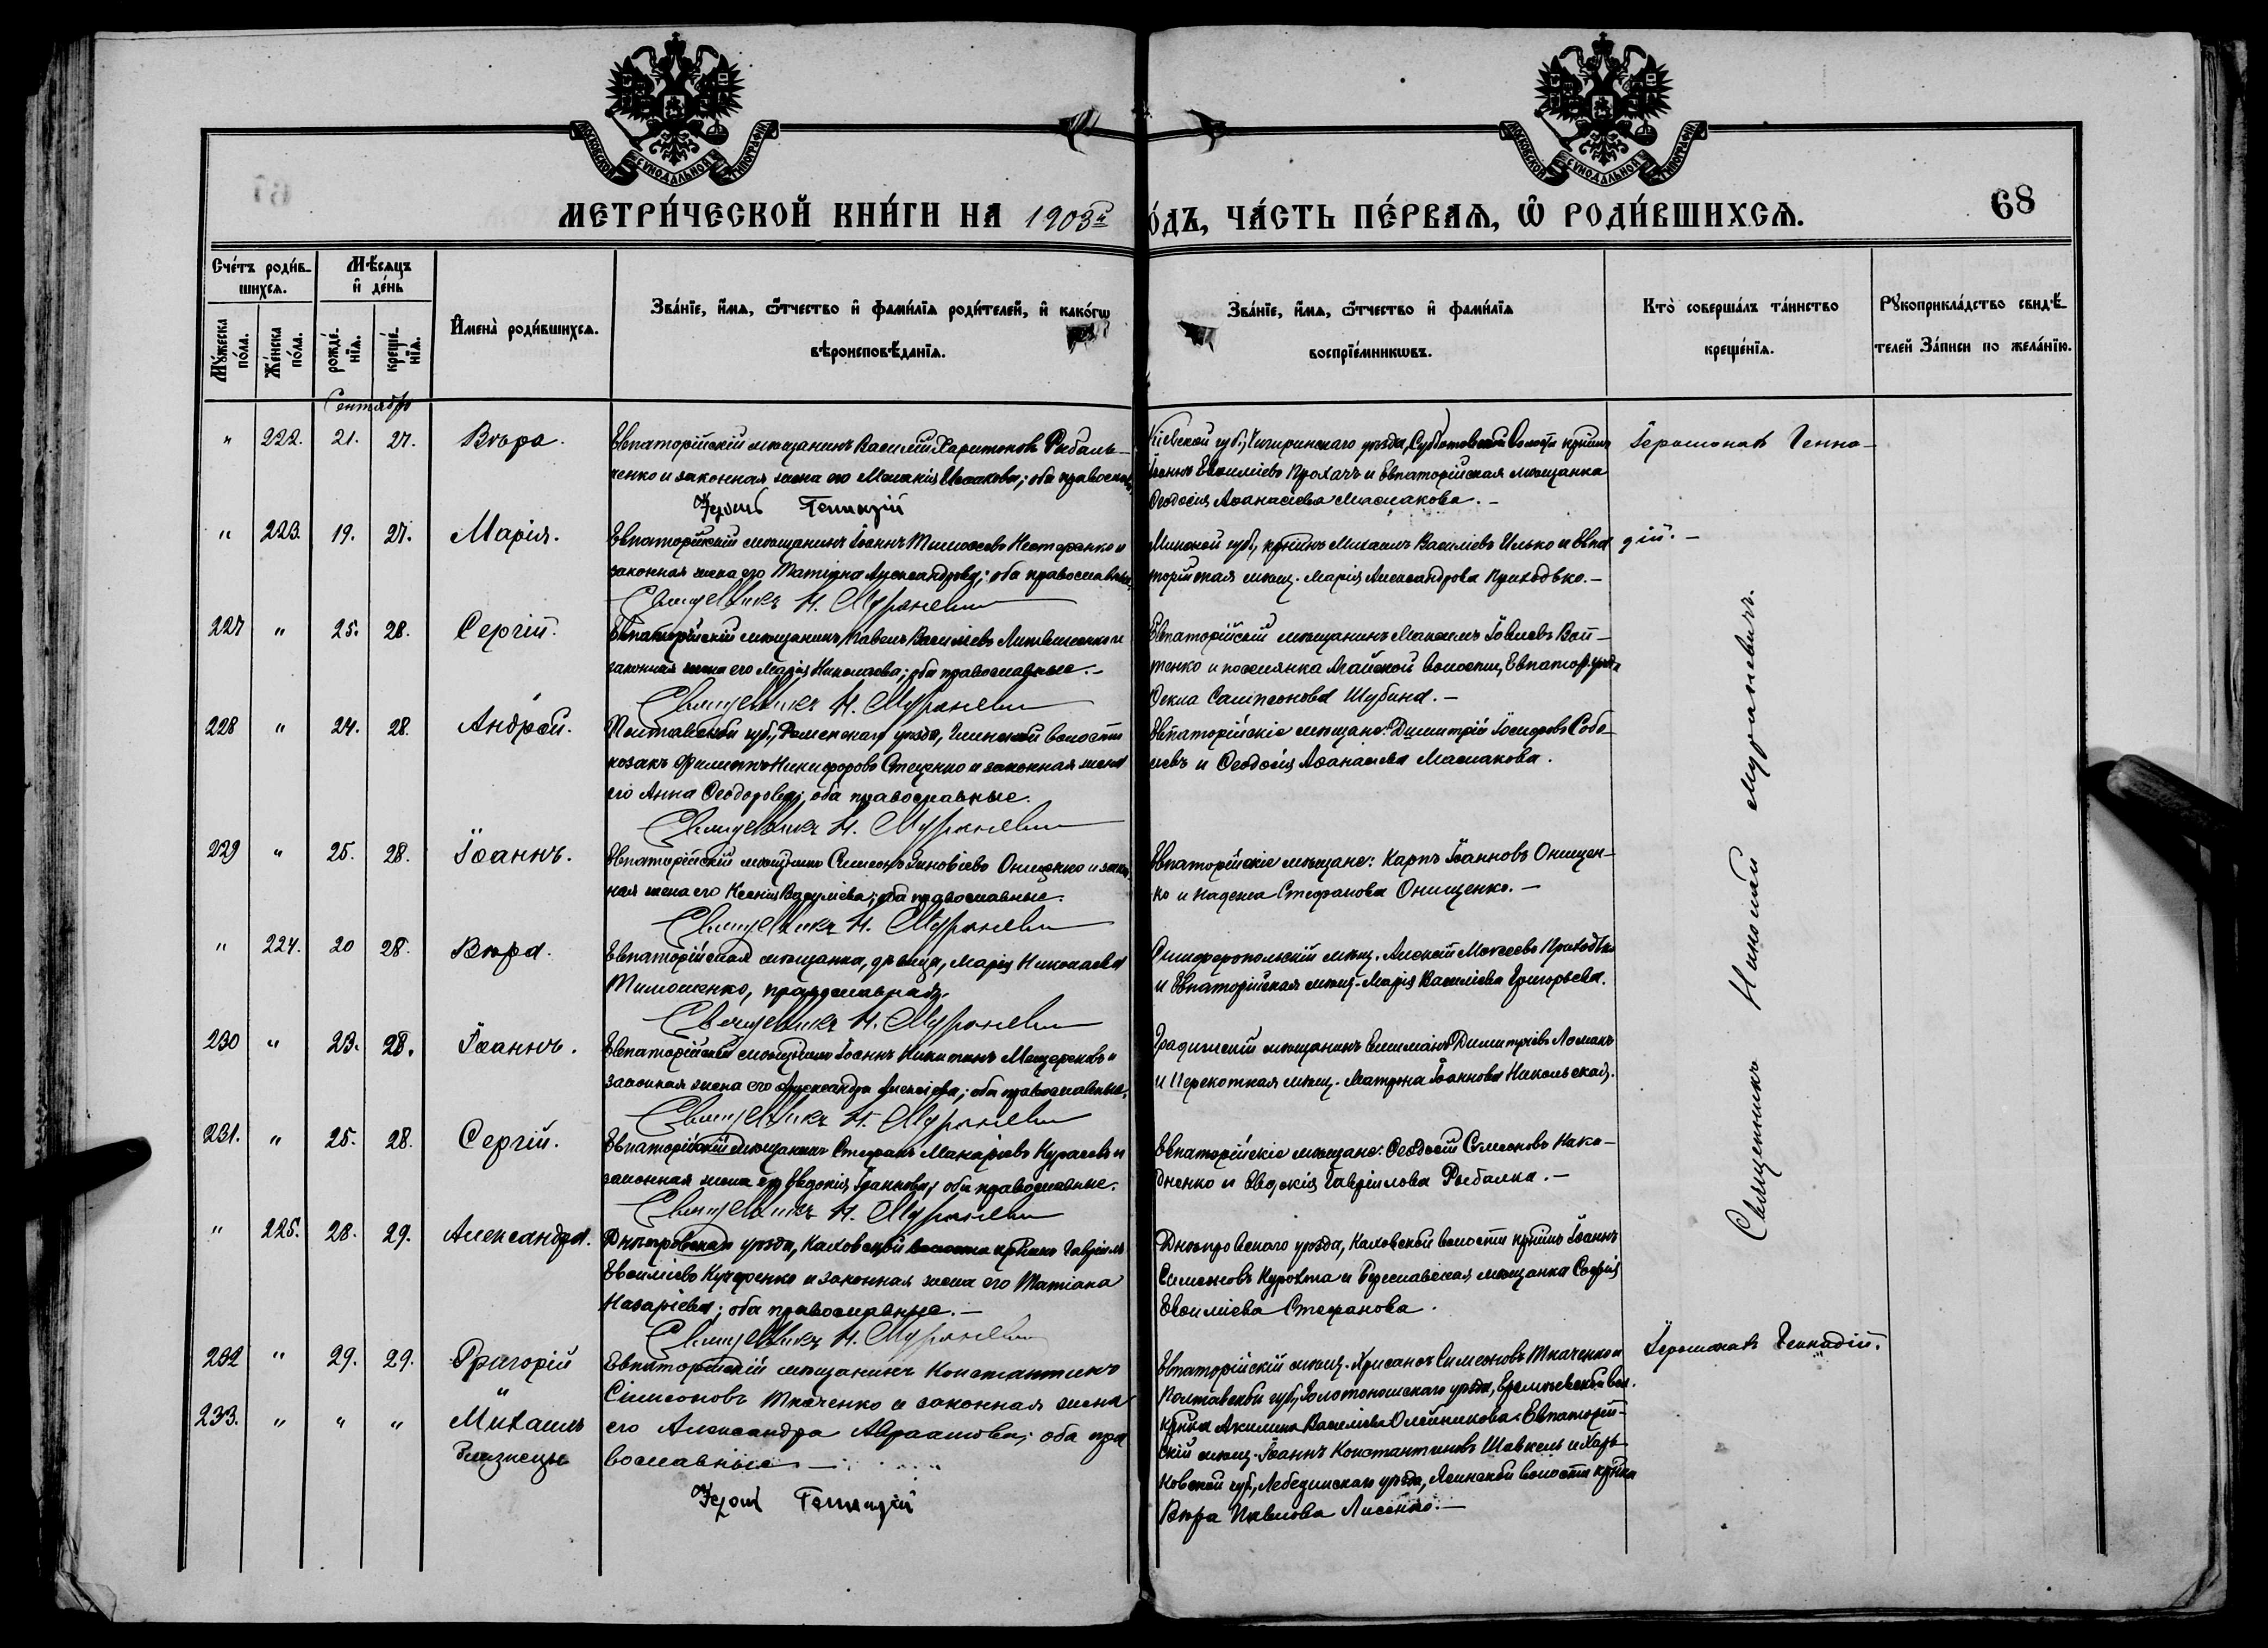 МОСКОВСКОЙ СѴНОДАЛЬНОЙ ТИПОГРАФІИ
МОСКОВСКОЙ СѴНОДАЛЬНОЙ ТИПОГРАФІИ
МЕТРИ́ЧЕСКОЙ КНИ́ГИ НА 1903й
О́ДЪ, ЧА́СТЬ ПЕ́РВАѦ, Ѿ РОДИ́ВШИХСѦ.
68
Сче́тъ роди́в-
шихсѧ.
Мꙋ́жеска по́ла.
Же́нска по́ла.
Мѣ́сѧцъ и҆ де́нь
рожде́-нїѧ.
креще́-нїѧ.
И҆мена̀ роди́вшихсѧ.
Зва́нїе, и҆́мѧ, ѻ҆́тчество и҆ фами́лїѧ роди́телей, и҆ како́гѡ
вѣроисповѣ́данїѧ.
Зва́нїе, и҆́мѧ, ѻ҆́тчество и҆ фами́лїѧ
воспрїе́мникѡвъ.
Кто̀ соверша́лъ та́инство
креще́нїѧ.
Рꙋкоприкла́дство свидѣ́-
телей за́писи по жела́нїю.
Сентябрь
" 222. 21. 27. Вѣра.
Евпаторійскій мѣщанинъ Василій Харитоновъ Рыбаль-
ченко и законная жена его Меланія Исаакова; оба православ
Іером Геннадій
Кіевской губ., Чигиринскаго уѣзда, Субботовской Волости крнинъ
Іоаннъ Евсиміевъ Прохачъ и Евпаторійская мѣщанка
Ѳеодосія Аѳанасіева Маслакова. –
Іеромонахъ Генна-
" 223. 19. 27. Марія.
Евпаторійскій мѣщанинъ Іоаннъ Тимоѳеевъ Нестеренко и
законная жена его Татіяна Александрова; оба православные
Священникъ Н. Мураневич
Минской губ., крнинъ Михаилъ Василіевъ Илько и Евпа
торійская мѣщ. Марія Александрова Приходько. –
дій. –
227 " 25. 28. Сергій.
Евпаторійскій мѣщанинъ Павелъ Василіевъ Литвиненко и
законная жена его Марія Николаева; оба православные. –
Священникъ Н. Мураневич
Евпаторійскій мѣщанинъ Максимъ Іовлевъ Вой-
тенко и поселянка Майской волости, Евпатор. уѣзд
Ѳекла Сампсонова Шубина. –
228 " 24. 28. Андрей.
Полтавской губ., Роменскаго уѣзда, Глинской волости
козакъ Филиппъ Никифоровъ Стеценко и законная жена
его Анна Ѳеодорова; оба православные.
Священникъ Н. Мураневич
Евпаторійскіе мѣщане: Димитрій Іосифовъ Собо-
левъ и Ѳеодосія Аѳанасіева Маслакова.
229 " 25. 28. Іоаннъ.
Евпаторійскій мѣщанинъ Симеонъ Зиновіевъ Онищенко и закон
ная жена его Ксенія Василіева; оба православные.
Священникъ Н. Мураневич
Евпаторійскіе мѣщане: Карпъ Іоанновъ Онищен-
ко и Надежа Стефанова Онищенко. –
" 224. 20 28. Вѣра.
Евпаторійская мѣщанка, дѣвица, Марія Николаева
Тимошенко, православная.
Священникъ Н. Мураневич
Симферопольскій мѣщ. Алексій Моисеевъ Приходько
и Евпаторійская мѣщ. Марія Василіева Григорьева.
230 " 23. 28. Іоаннъ.
Евпаторійскій мѣщанинъ Іоаннъ Никитинъ Мащеряковъ и
законная жена его Александра Алексіева; оба православные.
Священникъ Н. Мураневич
Градижскій мѣщанинъ Емиліанъ Димитріевъ Ломакъ
и Перекопская мѣщ. Матрона Іоаннова Никольская.
231. " 25. 28. Сергій.
Евпаторійскій мѣщанинъ Стефанъ Макаріевъ Курасевъ и
законная жена его Евдокія Іоаннова; оба православные.
Священникъ Н. Мураневич
Евпаторійскіе мѣщане: Ѳеодосій Симеоновъ Нако-
дненко и Евдокія Гавріилова Рыбалка. –
" 225. 28. 29. Александра.
Днѣпровскаго уѣзда, Каховской волости крнинъ Гавріилъ
Евсиміевъ Кучеренко и законная жена его Татіана
Назаріева; оба православные. –
Священникъ Н. Мураневич
Днѣпровскаго уѣзда, Каховской волости крнинъ Іоаннъ
Симеоновъ Курохта и Бериславская мѣщанка Софія
Евсиміева Стефанова.
Священникъ Николай Мураневичъ.
232 " 29. 29. Григорій
и
233. " " " Михаилъ
Близнецы
Евпаторійскій мѣщанинъ Константинъ
Сімеоновъ Ткаченко и законная жена
его Александра Авраамова; оба пра
вославные –
Іером Геннадій
Евпаторійскій мѣщ. Хрисанѳъ Симеоновъ Ткаченко и
Полтавской губ., Золотоношскаго уѣзда, Еремѣевской вол.
крнка Акилина Василіева Олейникова. Евпаторій-
скій мѣщ. Іоаннъ Константиновъ Шавкель и Харь-
ковской губ., Лебединскаго уѣзда, волости крнка
Вѣра Павлова Лисенко. –
Іеромонахъ Геннадій.